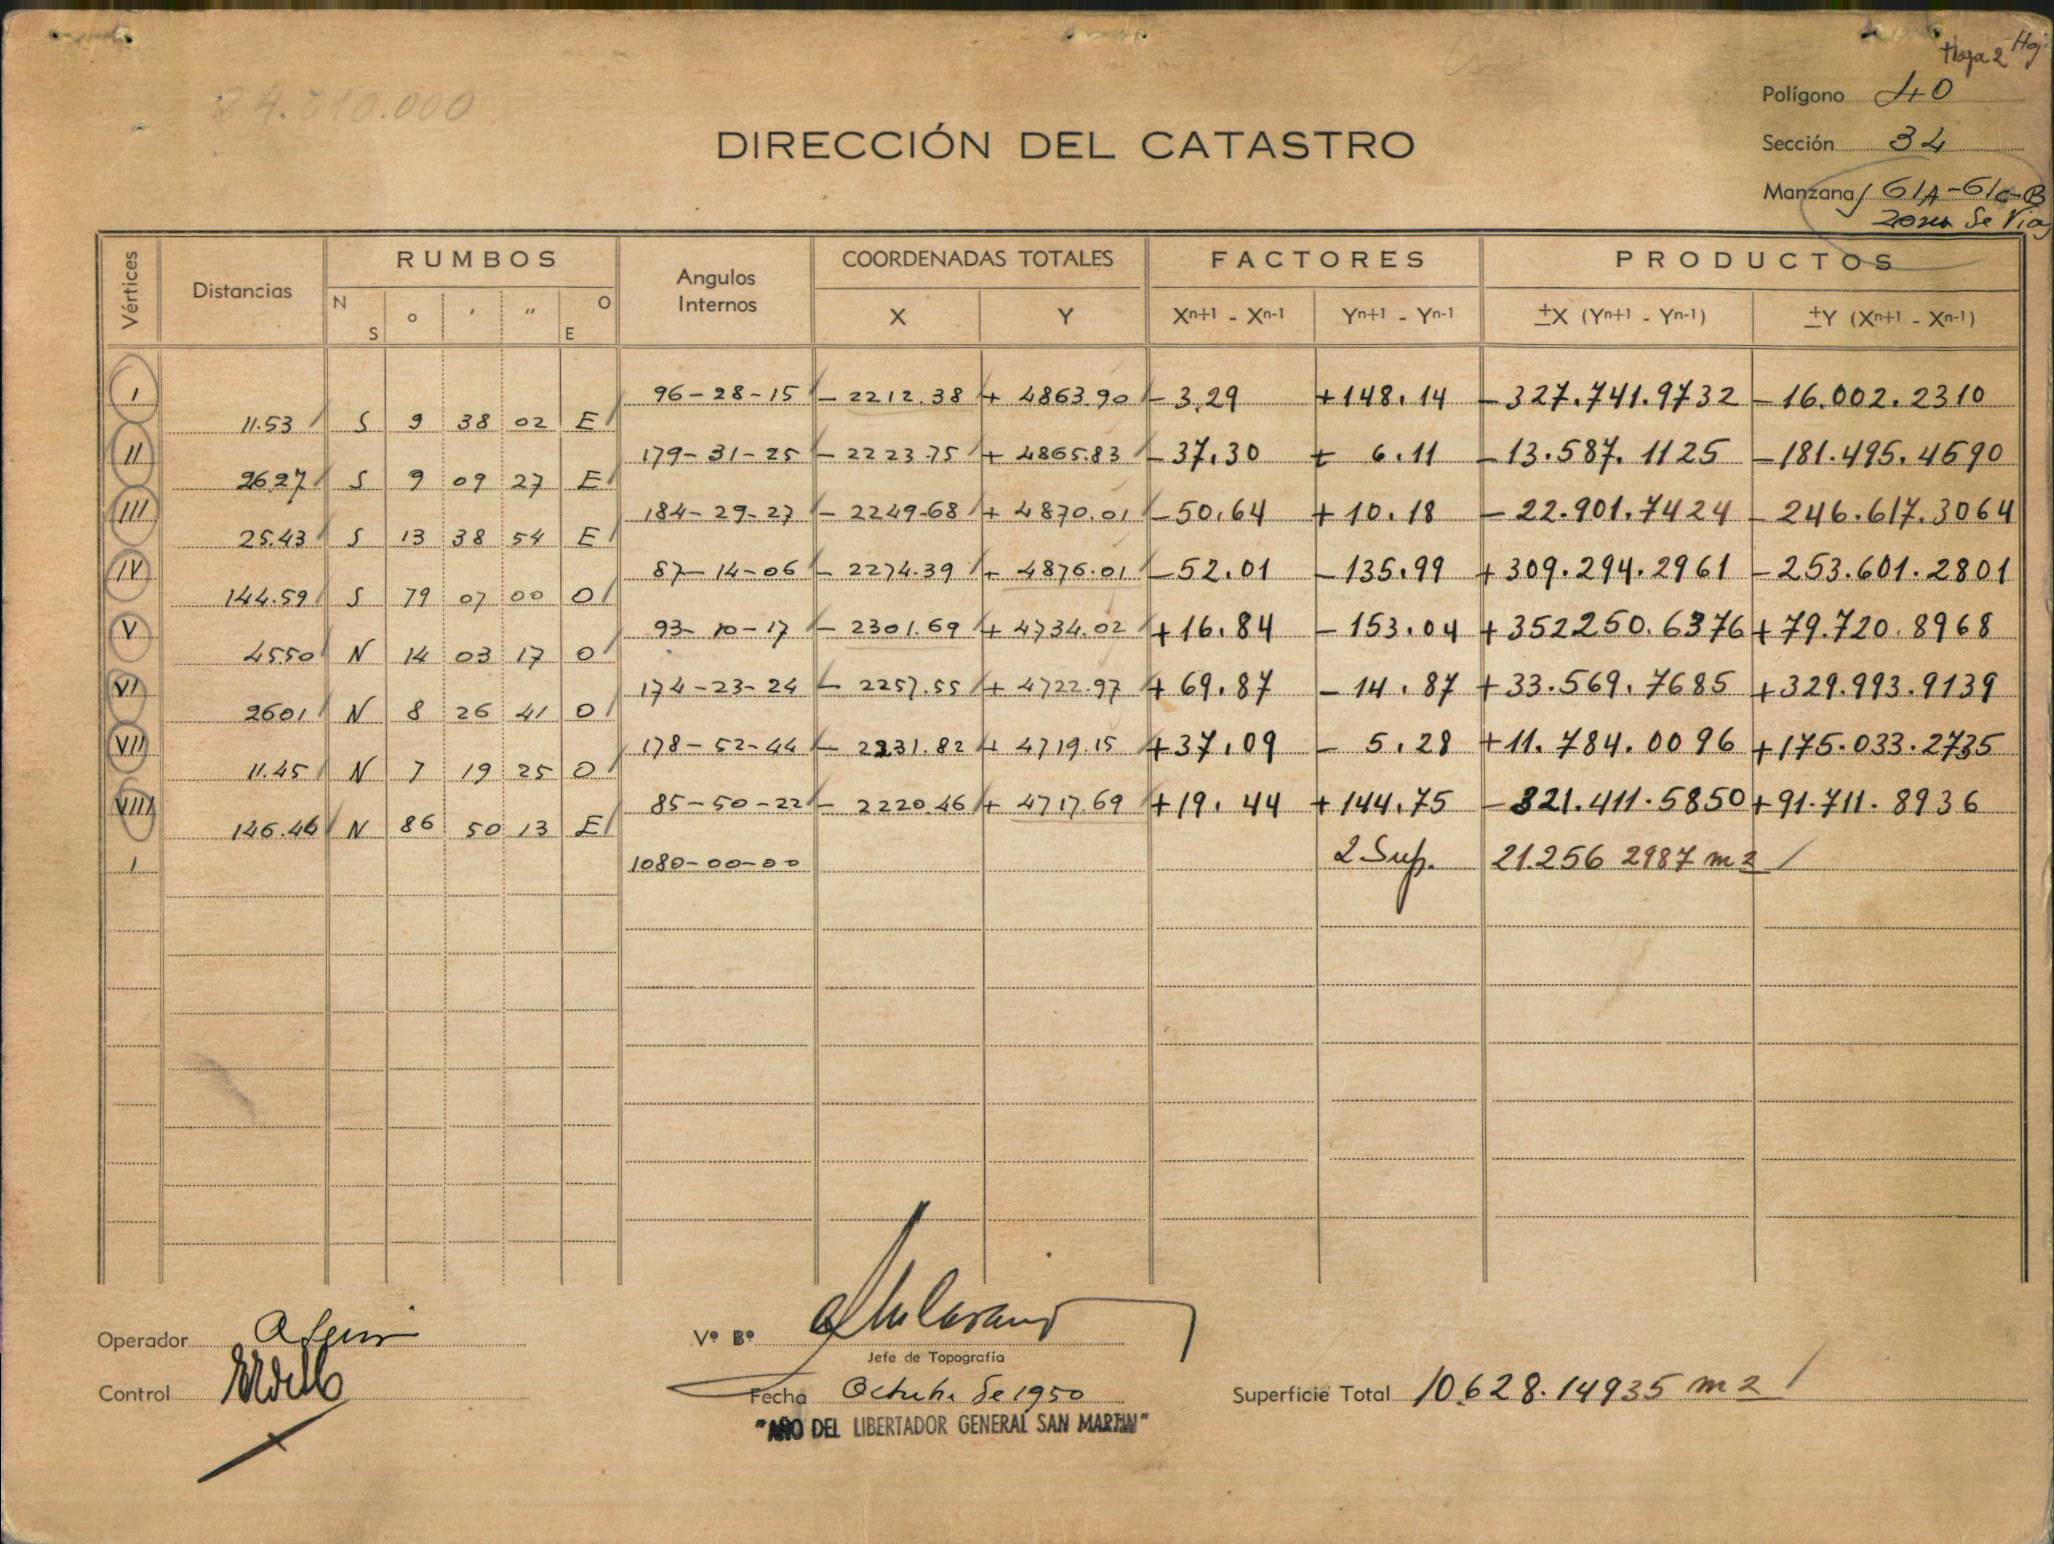 Hoja 2
Polígono 40
DIRECCIÓN DEL CATASTRO
Sección 34
Manzana 61A-61c-B
Zona de Vias
Vértices Distancias RUMBOS Angulos Internos COORDENADAS TOTALES FACTORES PRODUCTOS
N S ° ' " O E X Y Xn+1 - Xn-1 Yn+1 - Yn-1 ±X (Yn+1 - Yn-1) ±Y (Xn+1 - Xn-1)
I 96-28-15 - 2212.38 + 4863.90 - 3.29 + 148.14 - 327.741.9732 - 16.002.2310
11.53 S 9 38 02 E
II 179-31-25 - 2223.75 + 4865.83 - 37.30 + 6.11 - 13.587.1125 - 181.495.4590
26.27 S 9 09 27 E
III 184-29-27 - 2249.68 + 4870.01 - 50.64 + 10.18 - 22.901.7424 - 246.617.3064
25.43 S 13 38 54 E
IV 87-14-06 - 2274.39 + 4876.01 - 52.01 - 135.99 + 309.294.2961 - 253.601.2801
144.59 S 79 07 00 O
V 93-10-17 - 2301.69 + 4734.02 + 16.84 - 153.04 + 352250.6376 + 79.720.8968
45.50 N 14 03 17 O
VI 174-23-24 - 2257.55 + 4722.97 + 69.87 - 14.87 + 33.569.7685 + 329.993.9139
26.01 N 8 26 41 O
VII 178-52-44 - 2231.82 + 4719.15 + 37.09 - 5.28 + 11.784.0096 + 175.033.2735
11.45 N 7 19 25 O
VIII 85-50-22 - 2220.46 + 4717.69 + 19.44 + 144.75 - 321.411.5850 + 91.711.8936
146.46 N 86 50 13 E
I 1080-00-00 2 Sup. 21.256 2987 m2
Operador
Vº Bº
Jefe de Topografía
Control
Fecha Octubre de 1950
Superficie Total 10.628.14935 m2
"AÑO DEL LIBERTADOR GENERAL SAN MARTIN"